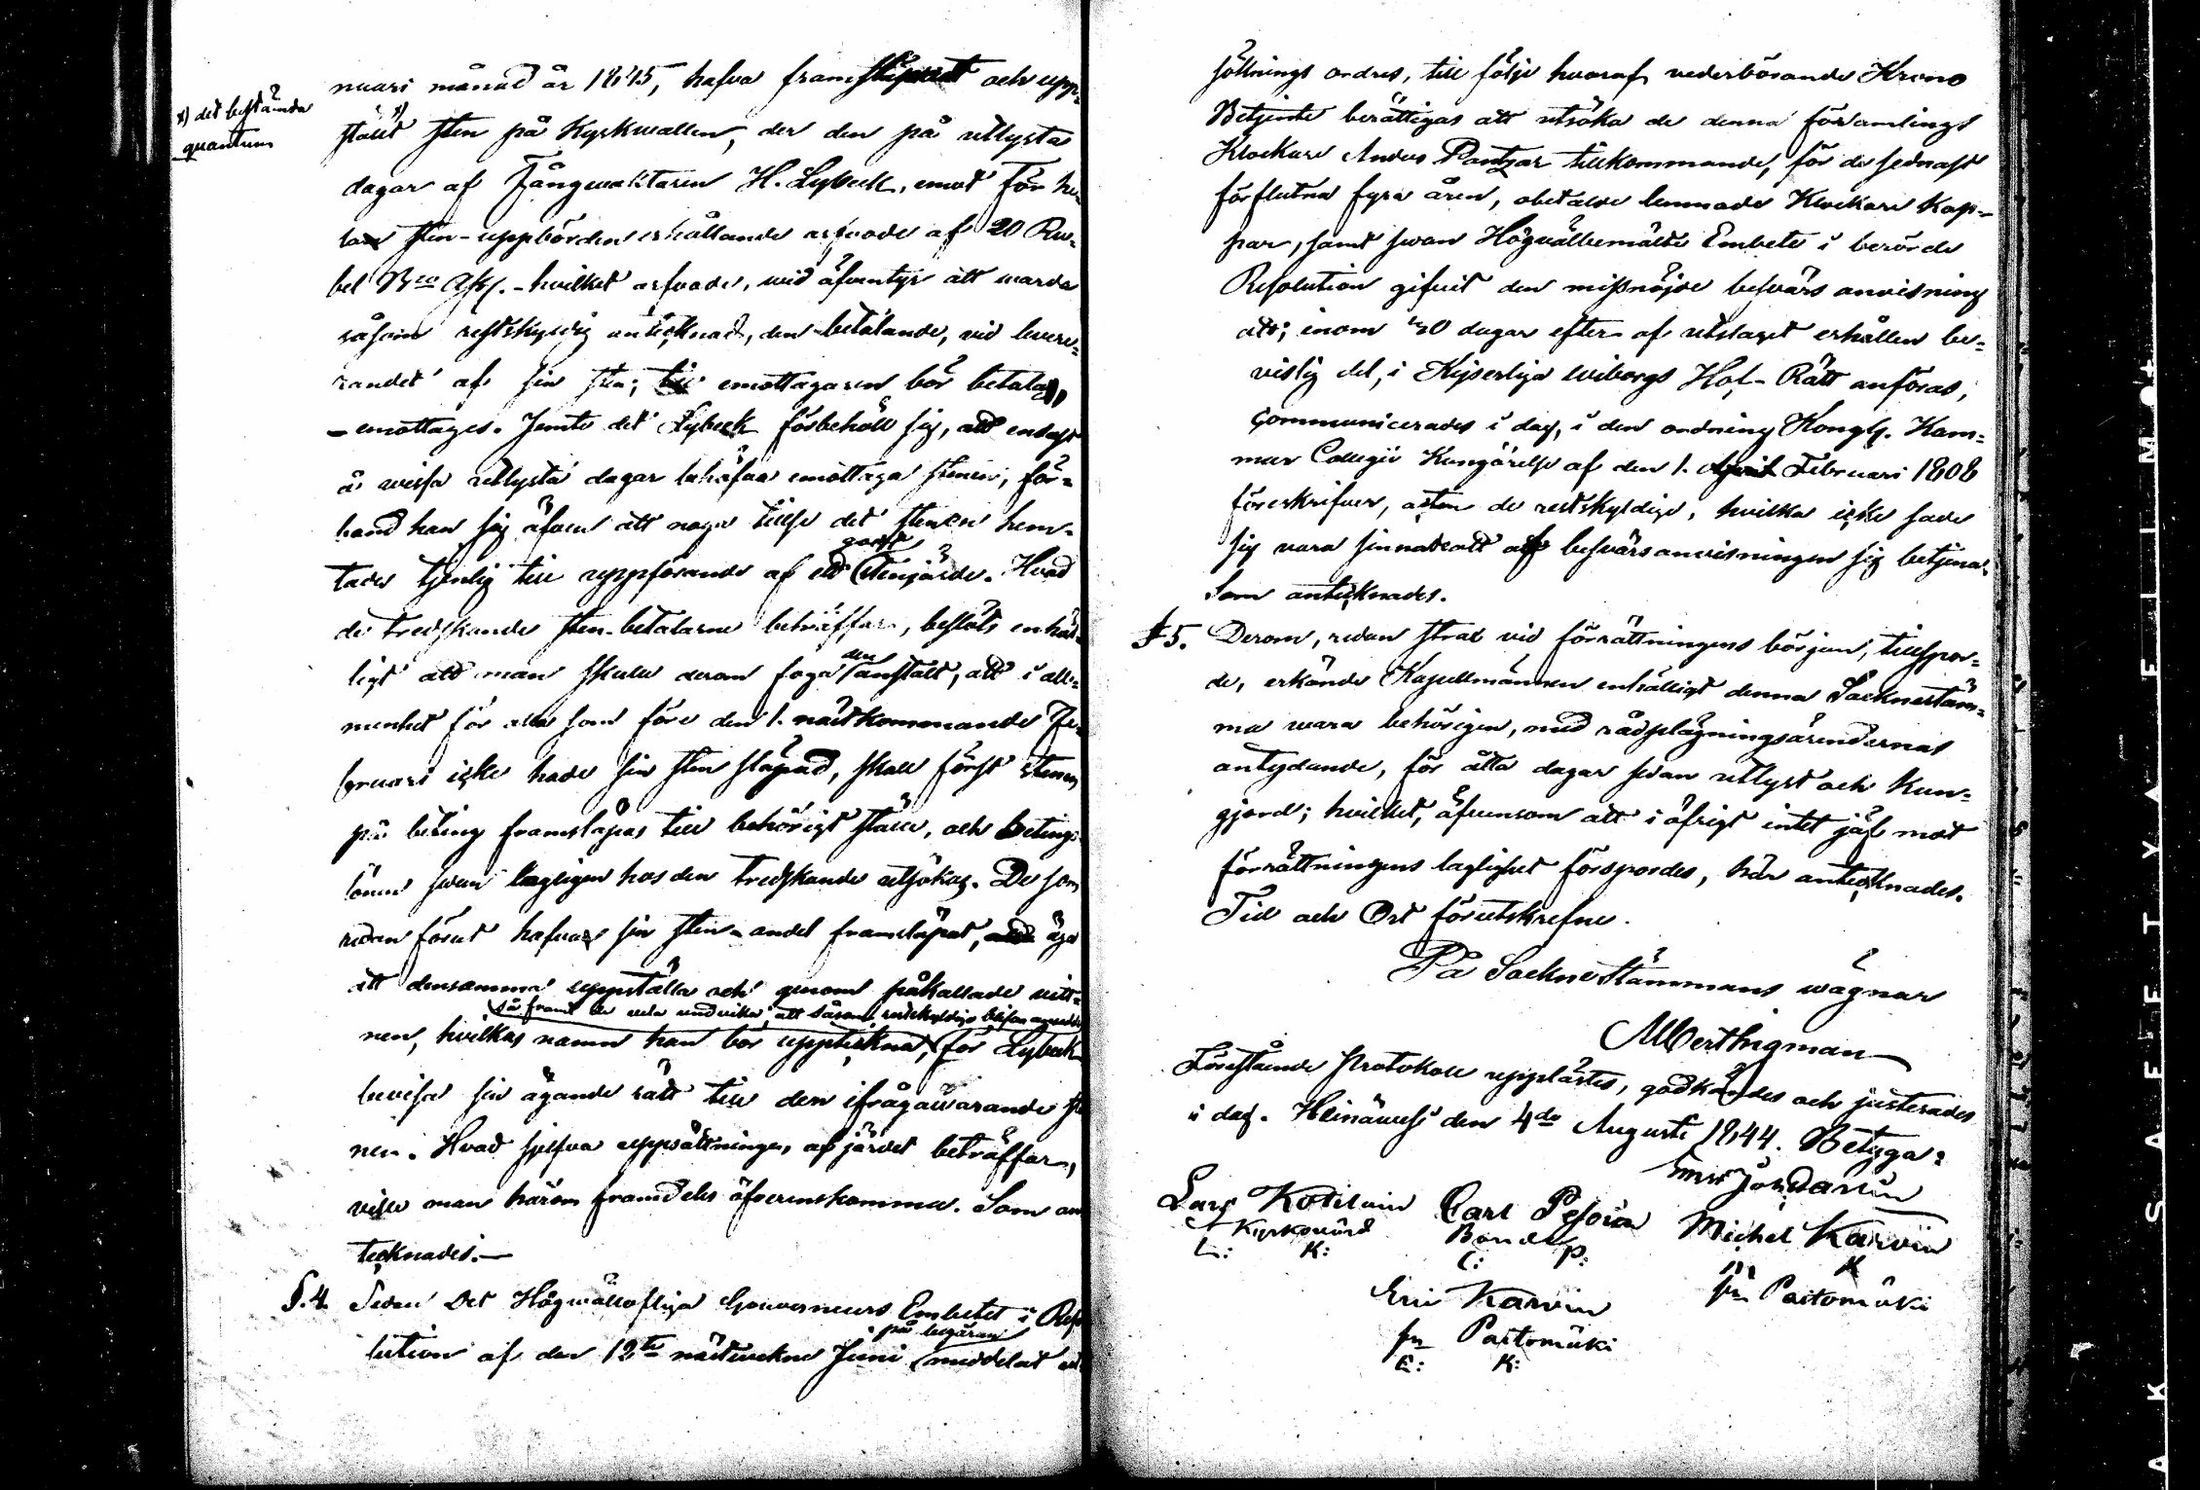 x) det bestämda
quantum
nuari månad år 1845, hafva framsläpadt och upp-
stäldt x) sten på Kyrkvallen, der den på utlysta
dagar af Fångvaktaren H. Lybeck, emot för he-
la sten-uppbörden erhållande arfvode af 20 Ru-
bel Bco Ass. - hvilket arfvode, wid äfventyr att warda
såsom restskyldig antecknad, den betalande, vid levere-
randet af sin sten, emottagaren bör betala,
- emottages. Jemte det Lybeck förbehöll sig, att endast
å wissa utlysta dagar behöfva emottaga stenen, för-
band han sig äfven att noga tillse det stenen hem-
tades tjenlig till uppförande af ett godt Stengärde. Hvad
de tredskande sten-betalarne beträffar, beslöts enhäl-
ligt att man skulle derom foga den anstalt, att i all-
menhet för alla som före den 1. nästkommande Fe-
bruari icke hade sin sten släpad, skall först stenen
på beting framsläpas till behörigt ställe, och betings
lönen sedan lagligen hos den tredskande utsökas. De som
redan förut hafva sin sten-andel framsläpat, äga
att densamma uppställa och genom påkallade vitt-
så framt de vela undvika att såsom restskyldige blifva ansedde
nen, hvilkas namn han bör uppteckna, för Lybeck
bevisa sin ägande rätt till den ifrågavarande ste-
nen. Hvad sjelfva uppsättningen af gärdet beträffar,
ville man härom framdeles öfverenskomma. Som an-
tecknades.—
§.4. Sedan Det Högwällofliga Gouverneurs Embetet i Reso-
lution af den 12te nästvekne Juni på begäran meddelat ut-
söknings ordres, till följe hvaraf vederbörande Krono
Betjente berättigas att utsöka de denna församlings
Klockare Anders Pantzar tillkommande, för de sednast
förflutna fyra åren, obetalde lemnade Klockare kap-
par, samt sedan Högvälbemälte Embete i berörde
Resolution gifvit den missnöjde besvärs anvisning
att, inom 30 dagar efter af utslaget erhållen be-
vislig del, i Kejserliga Wiborgs Hof-Rätt anföras,
Communicerades i dag, i den ordning Kongl. Kam-
mar Collegii Kungörelse af den 1. Februari 1808
föreskrifver, åtom de restskyldige, hvilka icke sade
sig vara sinnade att af besvärsanvisningen sig betjena.
Som antecknades.
§5. Derom, redan strax vid förrättningens början, tillspor-
de, erkände Kapellmännen enhälligt denna Socknestäm-
ma wara behörigen, med rådplägningsärendernas
antydande, för åtta dagar sedan utlyst och kun-
gjord; hvilket, äfvensom att i öfrigt intet jäf mot
förrättningens laglighet förspordes, här antecknades.
Tid och Ort förutskrefne.
På Sockne Stämmans wägnar
Alb
Förestående Protokoll upplästes, godkändes och justerades
i dag. Heinävesi den 4de Augusti 1844. Betyga:
Lars Kotilain
Kyrkovärd
L: K:
Carl Pesoin
Bonde
C: P:
Michel Karvin
M K
frn Paitomäki
Eric Karvin
frn Paitomäki
E: K: